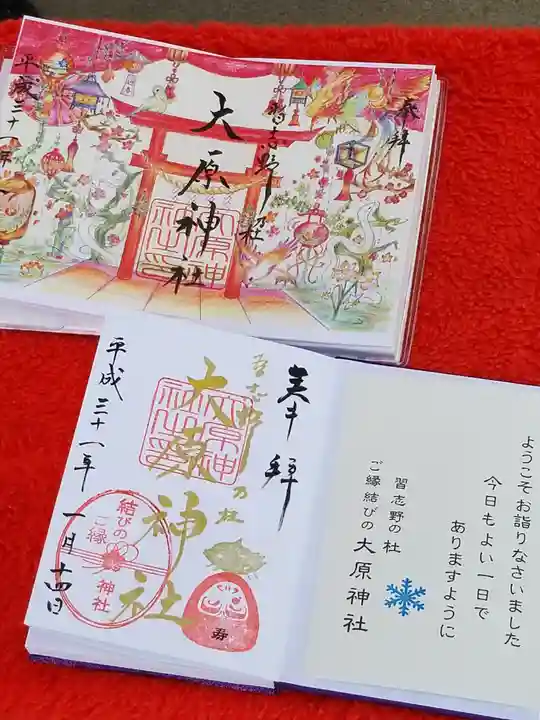 奉拝
習志野乃杜
大原神社
平成三十一年
奉拝
習志野乃杜
大原神社
平成三十一年一月十四日
結びの
ご縁
神社
寿
ようこそお詣りなさいました
今日もよい一日で
ありますように
習志野の杜
ご縁結びの 大原神社